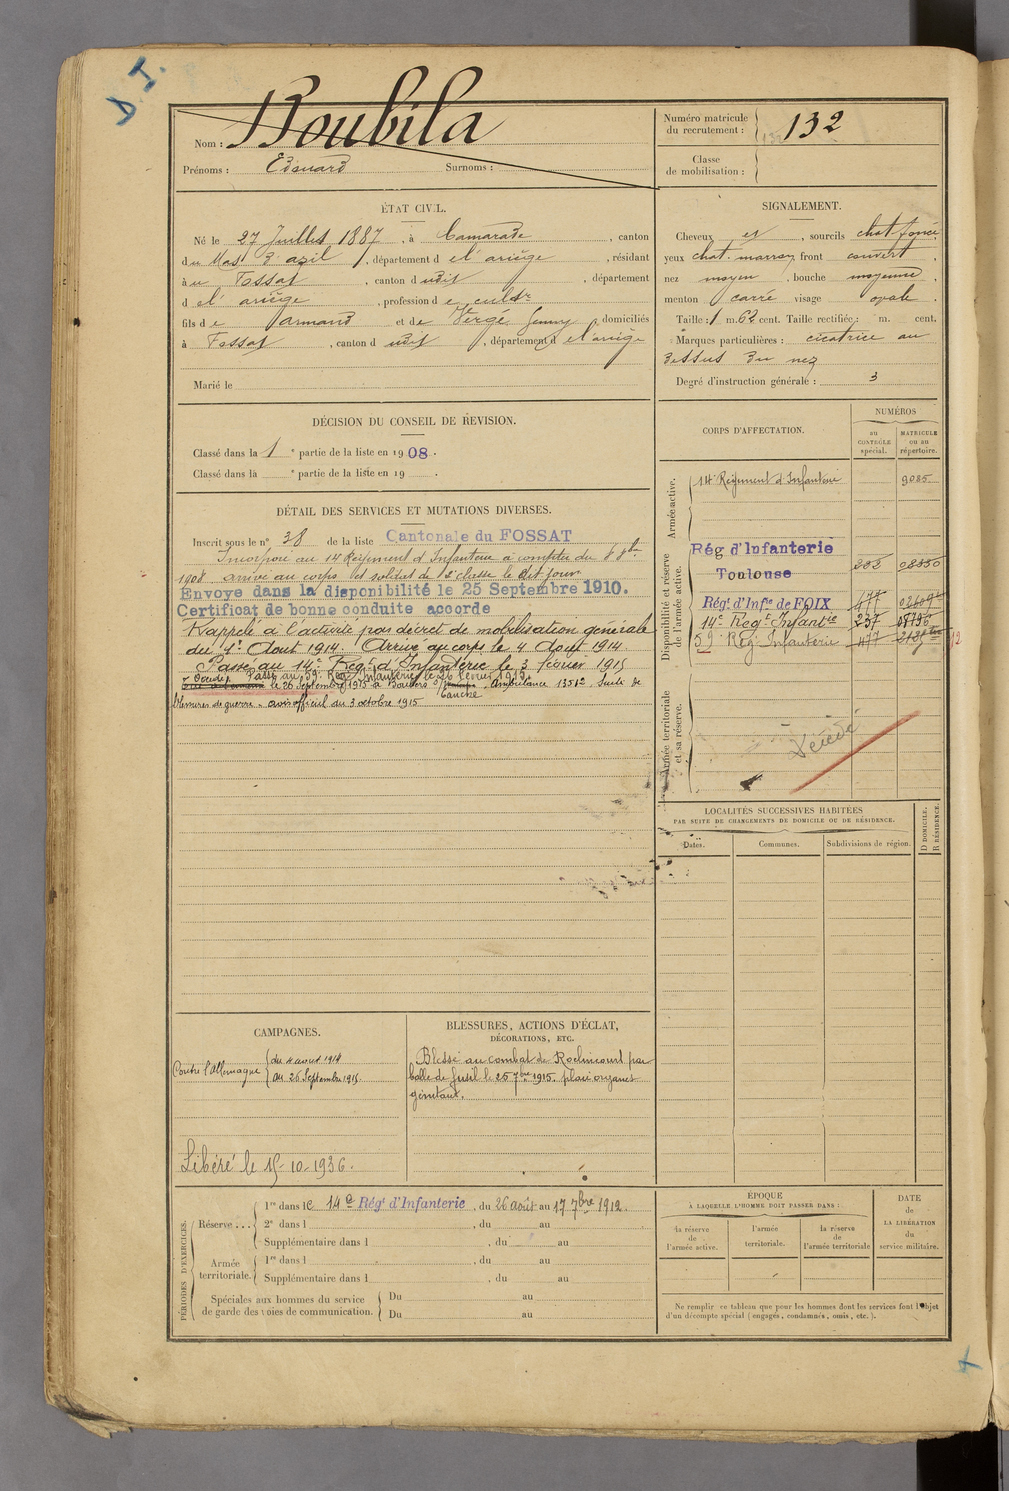 D. I.
Nom : Boubila
Prénoms : Edouard Surnoms :
Numéro matricule du recrutement : 132
Classe de mobilisation :
ÉTAT CIVIL.
Né le 27 Juillet 1887, à Camarade, canton
du Mas d'azil, département d el' ariège, résidant
à u Fossat, canton d udit, département
d el' ariège, profession d e cultr
fils d e Armand et de Vergé Jenny, domiciliés
à Fossat, canton d udit, département d el'ariège
Marié le
SIGNALEMENT.
Cheveux et, sourcils chat. foncé,
yeux chat. marron, front couvert,
nez moyen, bouche moyenne,
menton carré visage ovale.
Taille : 1 m. 62 cent. Taille rectifiée : m. cent.
Marques particulières : cicatrice au
dessus du nez
Degré d'instruction générale : 3
DÉCISION DU CONSEIL DE REVISION.
Classé dans la 1 e partie de la liste en 1908.
Classé dans la e partie de la liste en 19 .
DÉTAIL DES SERVICES ET MUTATIONS DIVERSES.
Inscrit sous le n° 38 de la liste Cantonale du FOSSAT
Incorporé au 14 Régiment d'Infanterie à compter du 8 8bre
1908 arrivé au corps et soldat de 2e classe le dit jour
Envoyé dans la disponibilité le 25 Septembre 1910.
Certificat de bonne conduite accordé
Rappelé à l'activité par décret de mobilisation générale
du 1er Août 1914. Arrivé au corps le 4 Août 1914
Passé au 14e Régt d'Infanterie le 3 février 1915
Passé au 59e Régt Infanterie le 26 février 1915
Décédé le 26 Septembre 1915 à Ambulance 13 S/12 Suite de
blessures de guerre. avis officiel du 3 octobre 1915
CORPS D'AFFECTATION.
NUMÉROS
au CONTRÔLE spécial.
MATRICULE ou au répertoire.
Armée active.
14e Régiment d'Infanterie 9085
Disponibilité et réserve de l'armée active.
Rég d'Infanterie
Toulouse 282 08350
Régt d'Infie de FOIX 477
14e Régt Infantie 237
59 Rég. Infanterie 477
Armée territoriale et sa réserve.
Décédé
LOCALITÉS SUCCESSIVES HABITÉES
PAR SUITE DE CHANGEMENTS DE DOMICILE OU DE RÉSIDENCE.
Dates. Communes. Subdivisions de région. D DOMICILE. R RÉSIDENCE.
CAMPAGNES.
Contre l'Allemagne { du 4 aout 1914
au 26 Septembre 1915.
Libéré le 15-10-1936.
BLESSURES, ACTIONS D'ÉCLAT,
DÉCORATIONS, ETC.
Blessé au combat de Roclincourt par
balle de fusil le 25 7bre 1915. plaie organes
génitaux.
PÉRIODES D'EXERCICES.
Réserve ... 1re dans le 14e Régt d'Infanterie, du 26 août au 17 7bre 1912.
2e dans l , du au
Supplémentaire dans l , du au
Armée territoriale. 1re dans l , du au
Supplémentaire dans l , du au
Spéciales aux hommes du service de garde des voies de communication. Du au
Du au
ÉPOQUE
À LAQUELLE L'HOMME DOIT PASSER DANS :
la réserve de l'armée active.
l'armée territoriale.
la réserve de l'armée territoriale
DATE
de
LA LIBÉRATION
du
service militaire.
Ne remplir ce tableau que pour les hommes dont les services font l'objet
d'un décompte spécial (engagés, condamnés, omis, etc.).